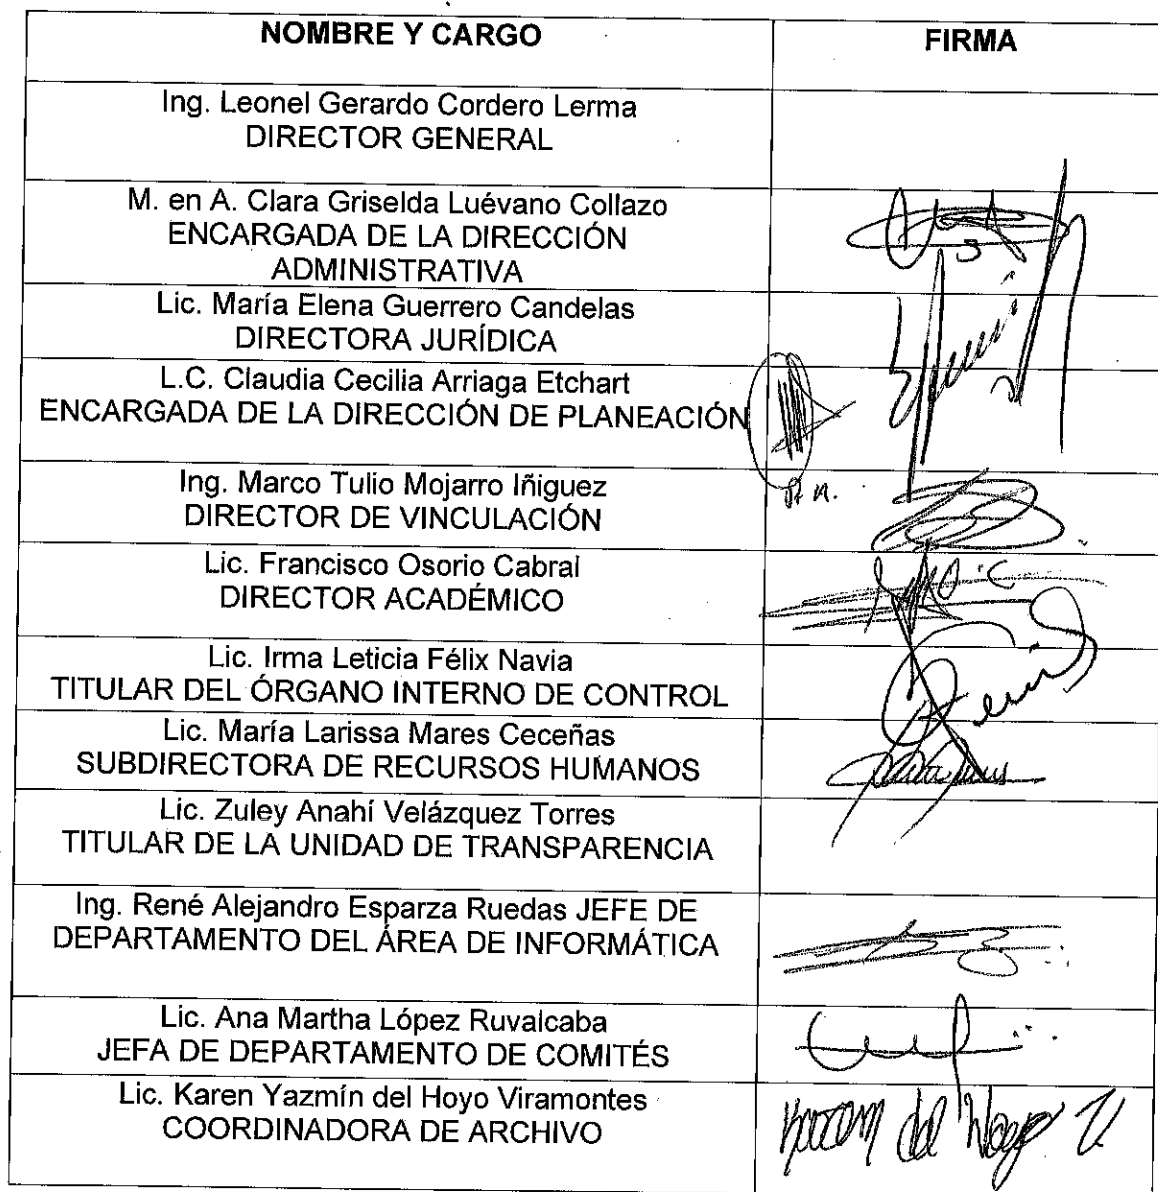 NOMBRE Y CARGO
FIRMA
Ing. Leonel Gerardo Cordero Lerma
DIRECTOR GENERAL
M. en A. Clara Griselda Luévano Collazo
ENCARGADA DE LA DIRECCIÓN
ADMINISTRATIVA
Lic. María Elena Guerrero Candelas
DIRECTORA JURÍDICA
L.C. Claudia Cecilia Arriaga Etchart
ENCARGADA DE LA DIRECCIÓN DE PLANEACIÓN
Ing. Marco Tulio Mojarro Iñiguez
DIRECTOR DE VINCULACIÓN
Lic. Francisco Osorio Cabral
DIRECTOR ACADÉMICO
Lic. Irma Leticia Félix Navia
TITULAR DEL ÓRGANO INTERNO DE CONTROL
Lic. María Larissa Mares Ceceñas
SUBDIRECTORA DE RECURSOS HUMANOS
Lic. Zuley Anahí Velázquez Torres
TITULAR DE LA UNIDAD DE TRANSPARENCIA
Ing. René Alejandro Esparza Ruedas JEFE DE
DEPARTAMENTO DEL ÁREA DE INFORMÁTICA
Lic. Ana Martha López Ruvalcaba
JEFA DE DEPARTAMENTO DE COMITÉS
Lic. Karen Yazmín del Hoyo Viramontes
COORDINADORA DE ARCHIVO
Karem del Hoyo V.